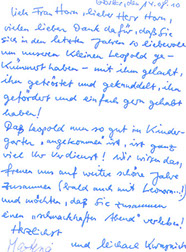 den 14.07.10
Liebe Frau Horn, lieber Herr Horn,
vielen lieben Dank dafür, daß Sie
sich in den letzten Jahren so liebevoll
um unseren kleinen Leopold ge-
kümmert haben – mit ihm gelacht,
ihn getröstet und geknuddelt, ihn
gefördert und einfach gern gehabt
haben!
Daß Leopold nun so gut im Kinder-
garten angekommen ist, ist ganz
viel Ihr Verdienst! Wir
freuen uns auf weitere schöne Jahre
zusammen (bald auch mit
und möchten, daß Sie zusammen
einen „schmackhaften Abend“ verleben!
Herzlichst
und Michael